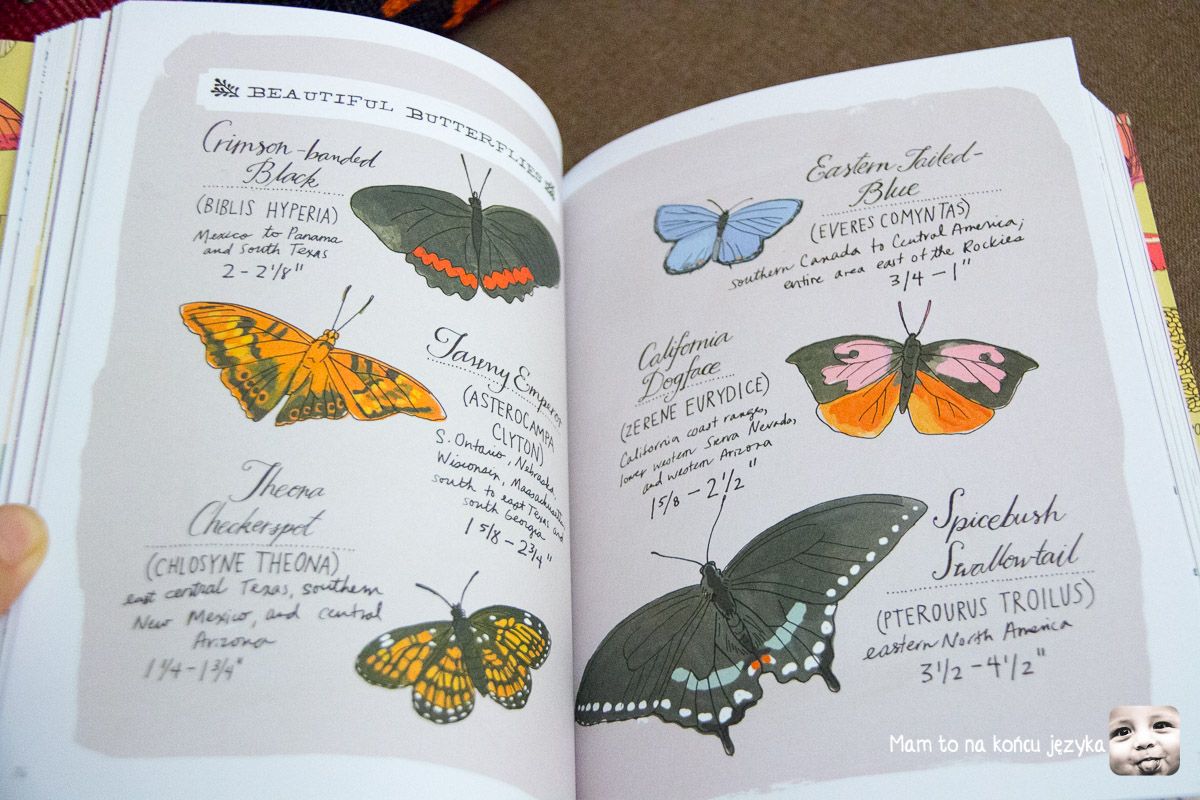 BEAUTIFUL BUTTERFLIES
Crimson-banded
Black
(BIBLIS HYPERIA)
Mexico to Panama
and South Texas
2 - 2 1/8"
Tawny Emperor
(ASTEROCAMPA
CLYTON)
S. Ontario, Nebraska,
Wisconsin, Massachusetts,
south to east Texas and
south Georgia
1 5/8 - 2 3/4"
Theona
Checkerspot
(CHLOSYNE THEONA)
east central Texas, southern
New Mexico, and central
Arizona
1 1/4 - 1 3/4"
Eastern Tailed-
Blue
(EVERES COMYNTAS)
southern Canada to Central America;
entire area east of the Rockies
3/4 - 1"
California
Dogface
(ZERENE EURYDICE)
California coast ranges,
lower western Sierra Nevada,
and western Arizona
1 5/8 - 2 1/2"
Spicebush
Swallowtail
(PTEROURUS TROILUS)
eastern North America
3 1/2 - 4 1/2"
Mam to na końcu języka